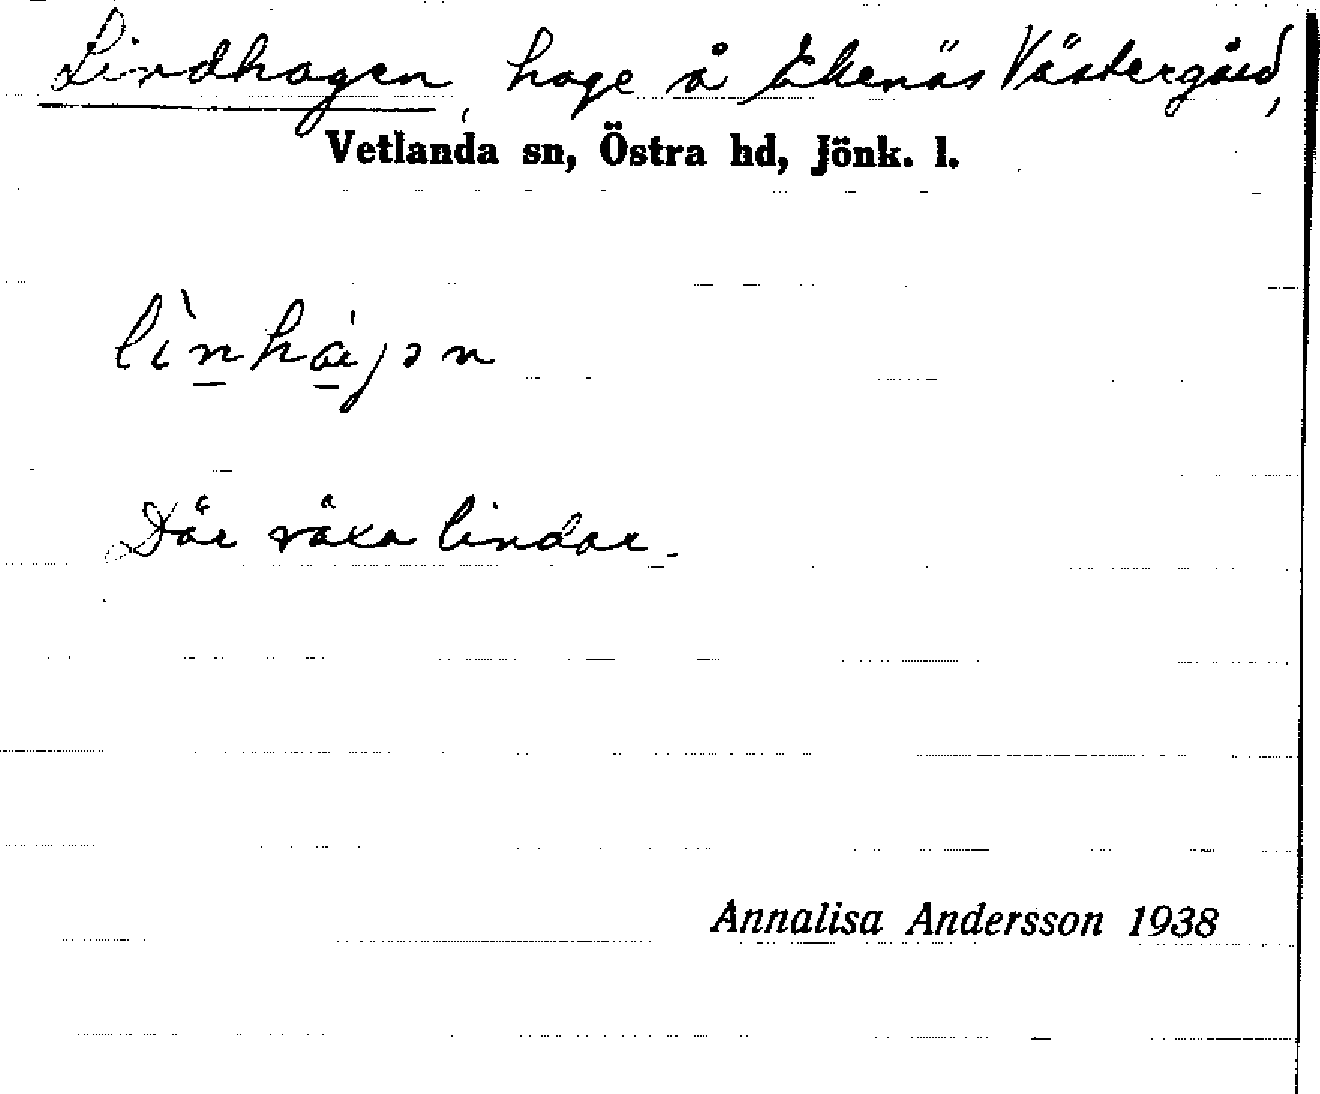 Lindhagen, hage å Ekenäs Västergård,
Vetlanda sn, Östra hd, Jönk. l.
Där växa lindar.
Annalisa Andersson 1938